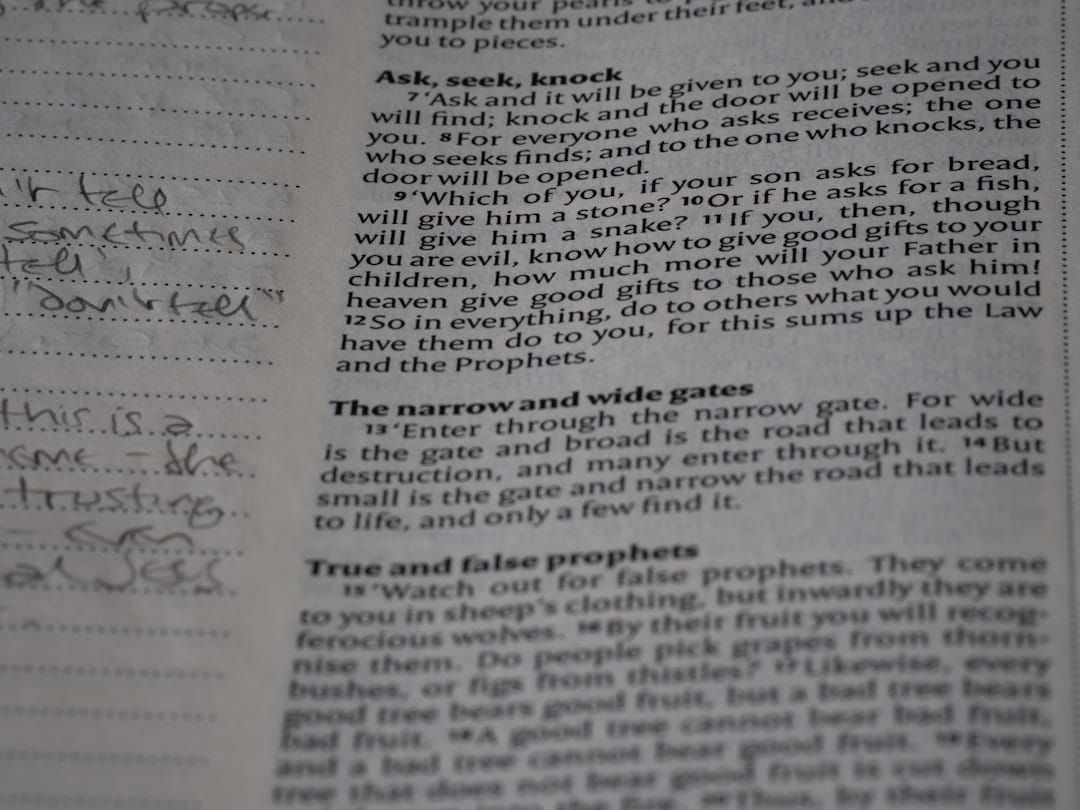 throw your pearls to
trample them under their feet, and
you to pieces.
Ask, seek, knock
7 ‘Ask and it will be given to you; seek and you
will find; knock and the door will be opened to
you. 8 For everyone who asks receives; the one
who seeks finds; and to the one who knocks, the
door will be opened.
9 ‘Which of you, if your son asks for bread,
will give him a stone? 10 Or if he asks for a fish,
will give him a snake? 11 If you, then, though
you are evil, know how to give good gifts to your
children, how much more will your Father in
heaven give good gifts to those who ask him!
12 So in everything, do to others what you would
have them do to you, for this sums up the Law
and the Prophets.
The narrow and wide gates
13 ‘Enter through the narrow gate. For wide
is the gate and broad is the road that leads to
destruction, and many enter through it. 14 But
small is the gate and narrow the road that leads
to life, and only a few find it.
True and false prophets
15 ‘Watch out for false prophets. They come
to you in sheep's clothing, but inwardly they are
ferocious wolves. 16 By their fruit you will recog-
nise them. Do people pick grapes from thorn-
bushes, or figs from thistles? 17 Likewise, every
good tree bears good fruit, but a bad tree bears
bad fruit. 18 A good tree cannot bear bad fruit,
and a bad tree cannot bear good fruit. 19 Every
tree that does not bear good fruit is cut down
tell
sometimes
tell',
"don't tell"
this is a
the
trusting